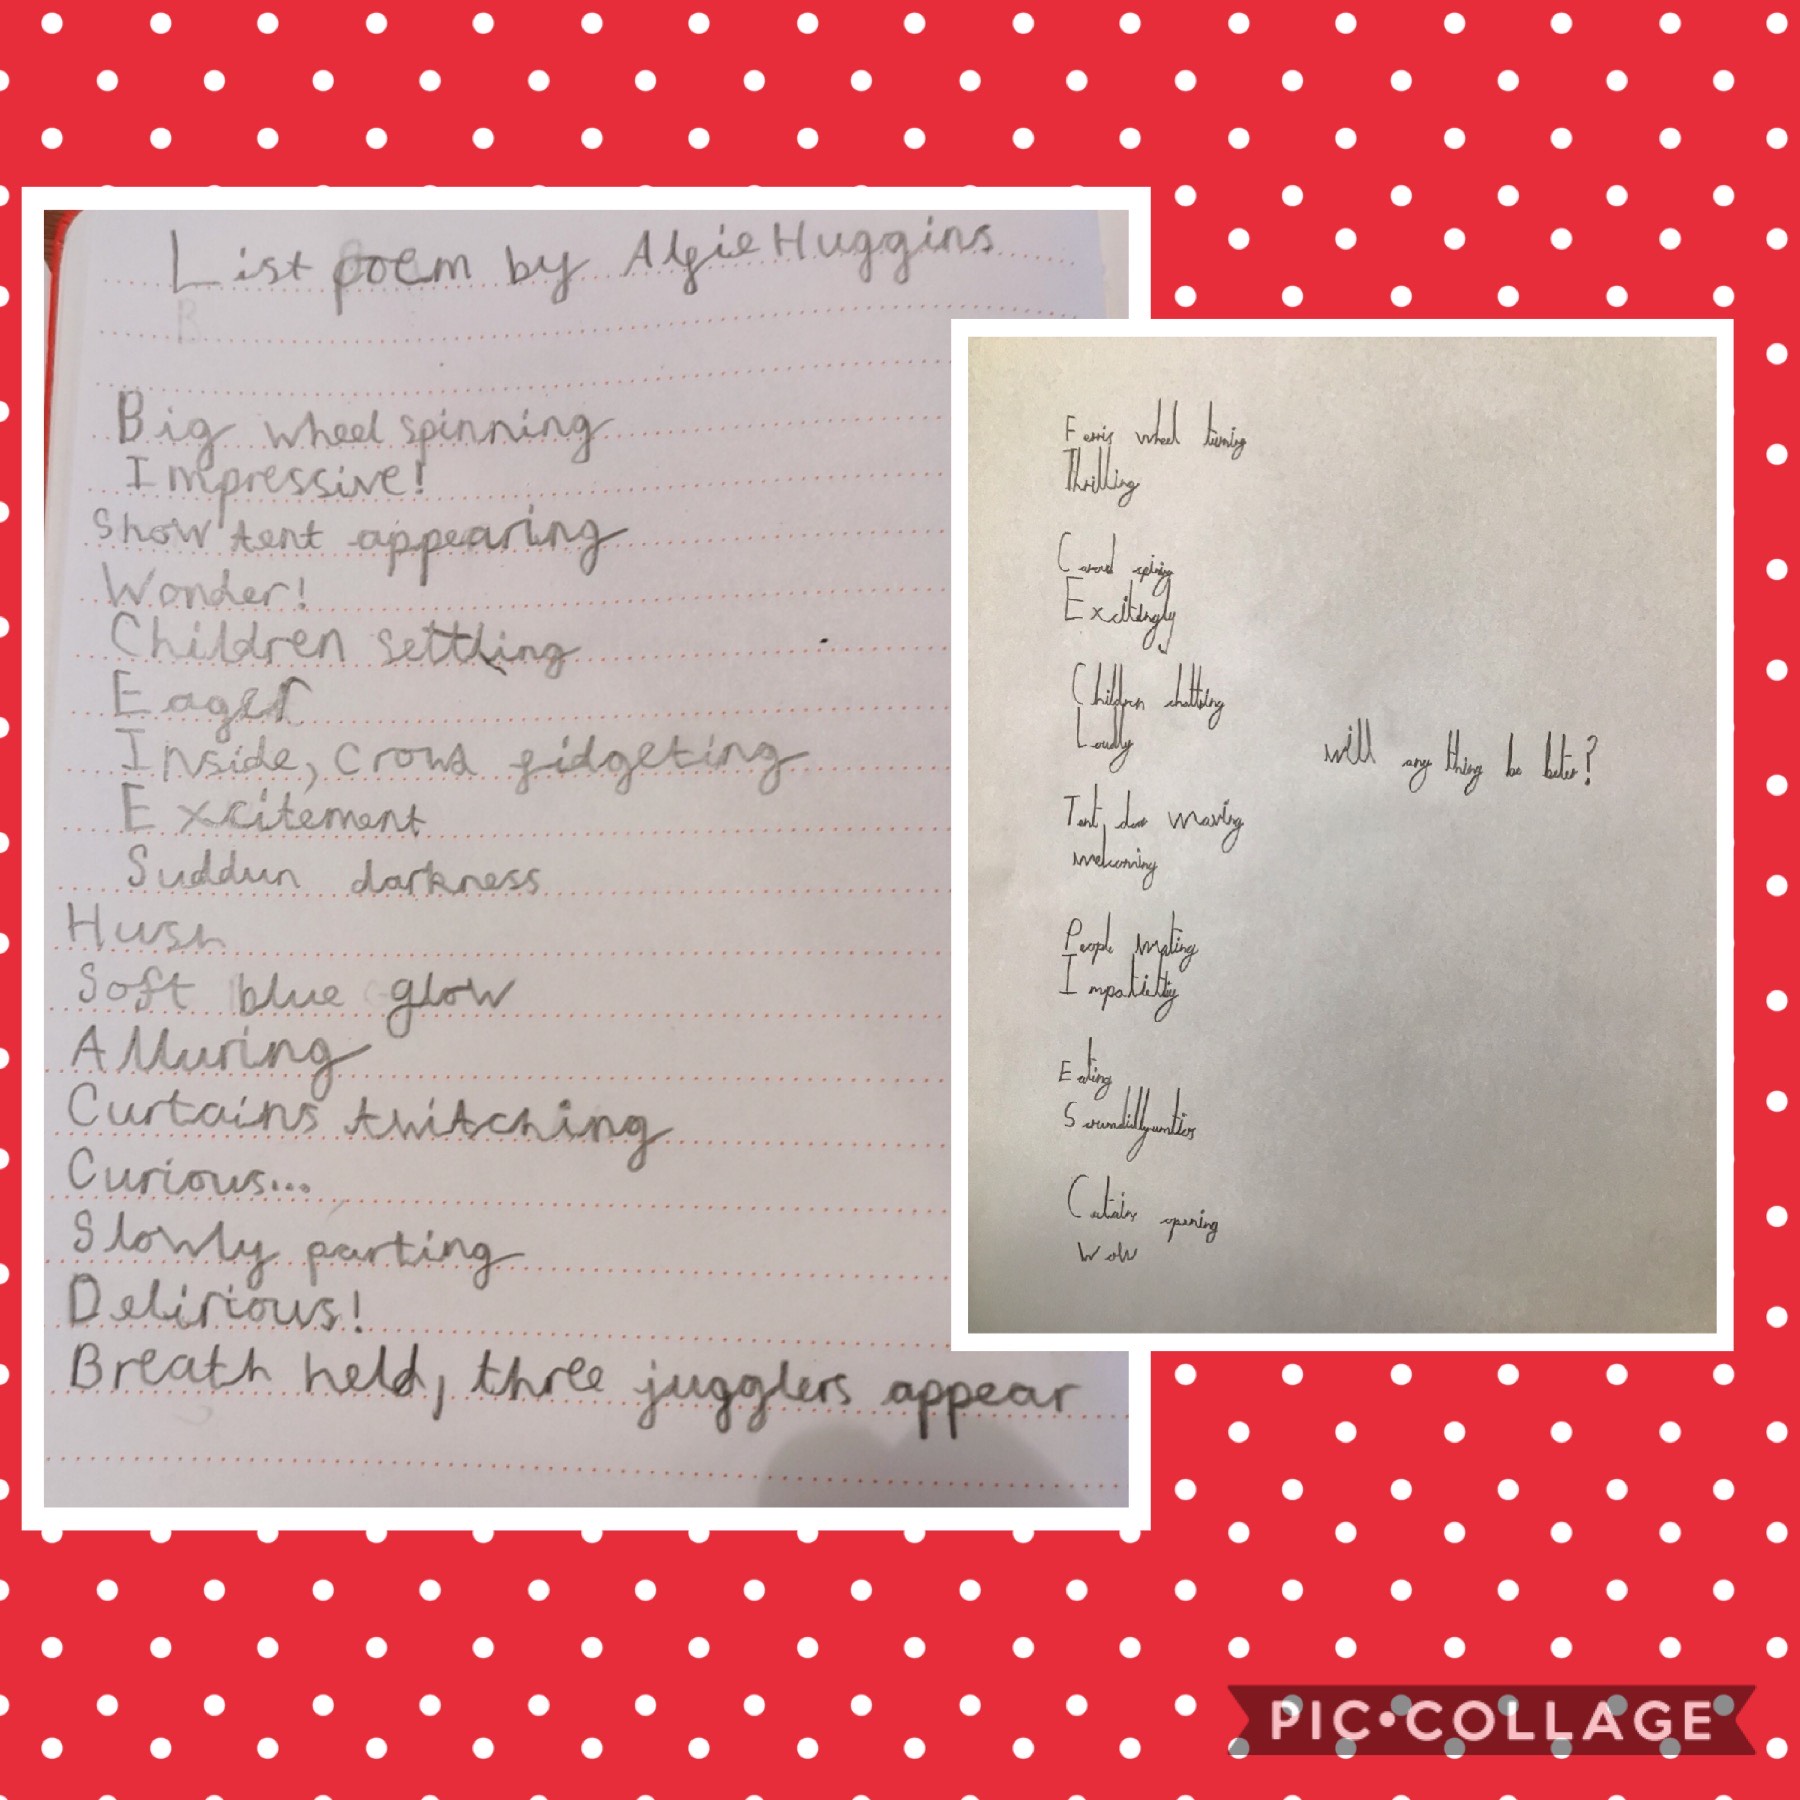 List poem by Algie Huggins
Big wheel spinning
Impressive!
Show tent appearing
Wonder!
Children settling
Eager
Inside, crowd fidgeting
Excitement
Suddun darkness
Hush
Soft blue glow
Alluring
Curtains twitching
Curious...
Slowly parting
Delirious!
Breath held, three jugglers appear
Ferris wheel turning
Thrilling
Excitingly
Children chatting
Loudly
Tent door waving
welcoming
People waiting
Eating
opening
Wow
will any thing be
PIC•COLLAGE